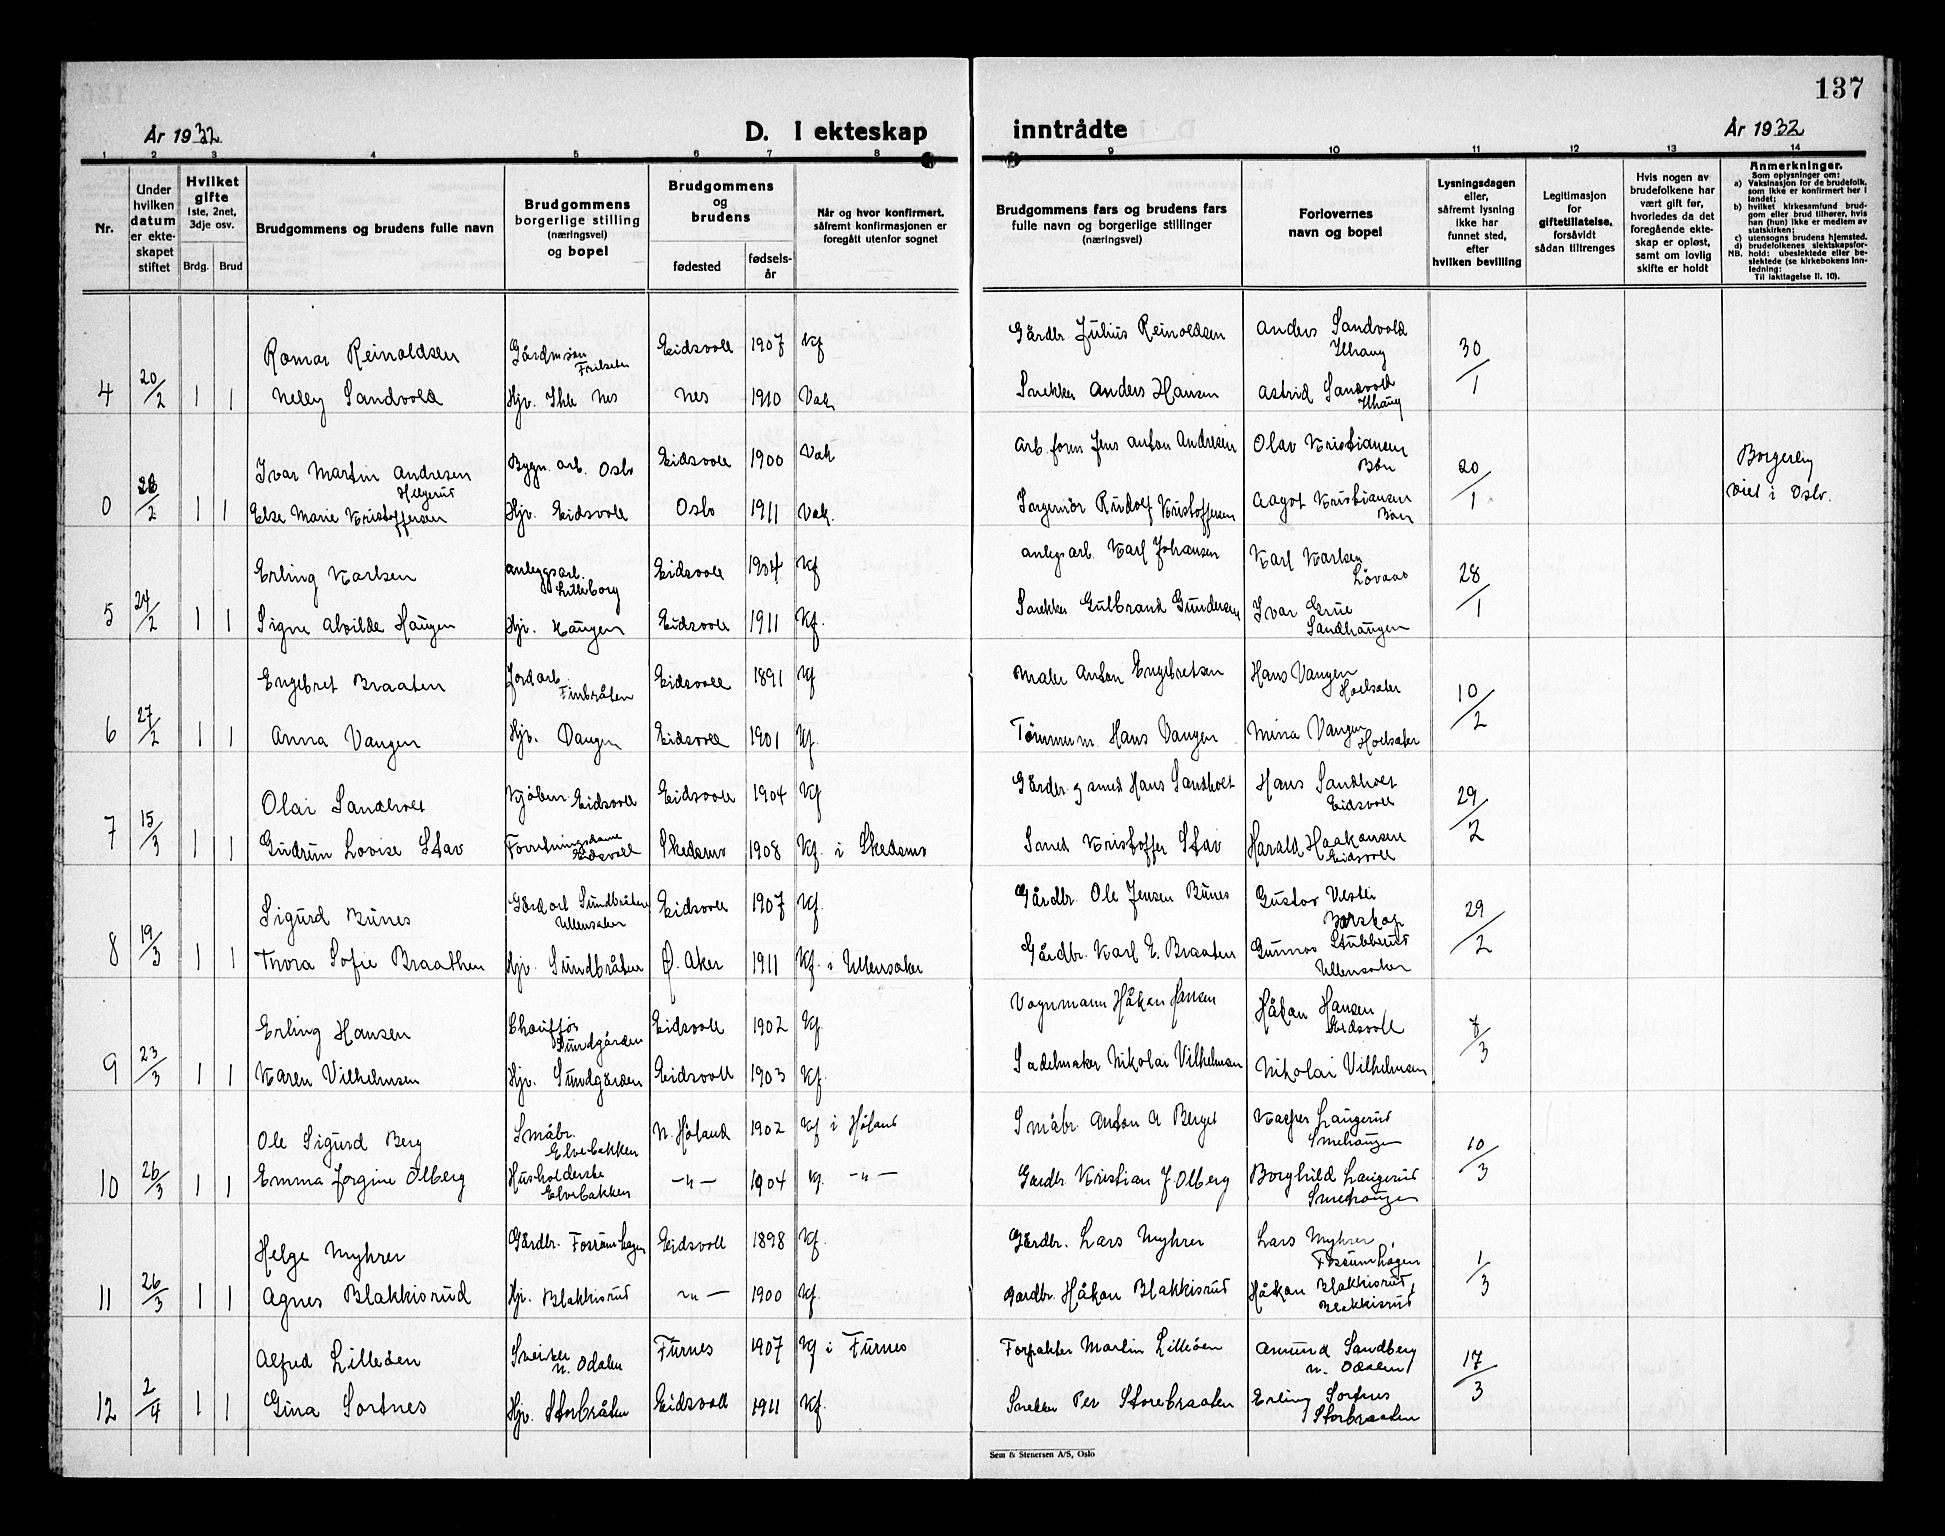 137
År 1932
D. I ekteskap
inntrådte
År 1932
1 2 3 4 5 6 7 8 9 10 11 12 13 14
Nr.
Under hvilken datum er ekteskapet stiftet
Hvilket gifte
1ste, 2net, 3dje osv.
Brdg. Brud
Brudgommens og brudens fulle navn
Brudgommens borgerlige stilling (næringsvei) og bopel
Brudgommens og brudens
fødested
fødsels-år
Når og hvor konfirmert, såfremt konfirmasjonen er foregått utenfor sognet
Brudgommens fars og brudens fars fulle navn og borgerlige stillinger (næringsvei)
Forlovernes navn og bopel
Lysningsdagen eller, såfremt lysning ikke har funnet sted, efter hvilken bevilling
Legitimasjon for giftetillatelse, forsåvidt sådan tiltrenges
Hvis nogen av brudefolkene har vært gift før, hvorledes da det foregående ekteskap er opløst, samt om lovlig skifte er holdt
Anmerkninger.
Som oplysninger om:
a) Vaksinasjon for de brudefolk, som ikke er konfirmert her i landet;
b) hvilket kirkesamfund brudgom eller brud tilhører, hvis han (hun) ikke er medlem av statskirken;
c) utensogns brudens hjemsted.
d) brudefolkenes slektskapsforhold: ubeslektede eller beslektede (se kirkebokens innledning:
NB.
Til iakttagelse II. 10).
Romar Reinoldsen Gårdmson Eidsvoll 1907 Kf Gårdbr. Julius Reinoldsen Anders Sandvold Ilhaug 30/1
4 20/2 1 1 Nelly Sandvold Hjv. Ihle Nes Nes 1910 Vak Snekker Anders Hansen Astrid Sandvold Ilhaug
Ivar Martin Andresen Helgerud Bygn. arb. Oslo Eidsvoll 1900 Vak Arb. form Jens Anton Andresen Olav Kristiansen Bön 20/1 Borgerlig viet i Oslo.
0 /2 1 1 Else Marie Kristoffersen Hjv. Eidsvoll Oslo 1911 Vak. Ingeniör Rudolf Kristoffersen Aagot Kristiansen Bön
Erling Karlsen anleggsarb. Lilleborg Eidsvoll 1904 Kf anlegsarb. Karl Johansen Karl Karlsen Lövaas 28/1
5 24/2 1 1 Signe Alvilde Haugen Hjv. Haugen Eidsvoll 1911 Kf. Snekker Gulbrand Gundersen Ivar Grue Sandhaugen
Engebret Braaten Jordarb. Finbråten Eidsvoll 1891 Kf Maler Anton Engebretsen Hans Vangen Hoelsæter 10/2
6 27/2 1 1 Anna Vangen Hjv. Vangen Eidsvoll 1901 Kf. Tömmerm. Hans Vangen Mina Vangen Hoelsæter
Olai Sandholt Kjöbm. Eidsvoll Eidsvoll 1904 Kf Gårdbr. og smed Hans Sandholt Hans Sandholt Eidsvoll 29/2
7 15/3 1 1 Gudrun Lovise Stav Forretningsdame Eidsvoll Skedsmo 1908 Kf. i Skedsmo Smed Kristoffer Stav Harald Haakonsen Eidsvoll
Sigurd Bunes Gårdarb. Sundbråten Ullensaker Eidsvoll 1907 Kf. Gårdbr. Ole Jensen Bunes Gustav Vestli 29/2
8 19/3 1 1 Thora Sofie Braathen Hjv. Sundbråten Ø. Aker 1911 Kf. i Ullensaker Gårdbr. Karl E. Braaten Gunnar Stubberud Ullensaker
Erling Hansen Chauffør Sundgården Eidsvoll 1902 Kf. Vognmann Håkon Hansen Håkon Hansen Eidsvoll 7/3
9 23/3 1 1 Karen Vilhelmsen Hjv. Sundgården Eidsvoll 1903 Kf. Sadelmaker Nikolai Vilhelmsen Nikolai Vilhelmsen
Ole Sigurd Berg Småbr. Elvebakken N. Höland 1902 Kf i Höland Småbr. Anton A Berget Kasper Langerud Smehaugen 10/3
10 26/3 1 1 Emma Jorgine Olberg Husholderske Elvebakken —"— 1904 Kf. —"— Gardbr Kristian J. Olberg Borghild Langerud Smehaugen
Helge Myhrer Gårdbr. Fossumhagen Eidsvoll 1898 Kf. Gårdbr. Lars Myhrer Lars Myhrer, Fossumhagen 1/3
11 26/3 1 1 Agnes Blakkisrud Hjv. Blakkisrud —"— 1900 Kf. Gardbr. Håkon Blakkisrud Håkon Blakkisrud, Blakkisrud
Alfred Lilleöen Sveiser N. Odalen Furnes 1907 Kf i Furnes Forpakter Martin Lilleöen Amund Sandberg N. Odalen 17/3
12 2/4 1 1 Gina Sortnes Hjv. Storbråten Eidsvoll 1911 Kf. Snekker Per Storebraaten Erling Sortnes Storbraaten
Sem & Stenersen A/S, Oslo